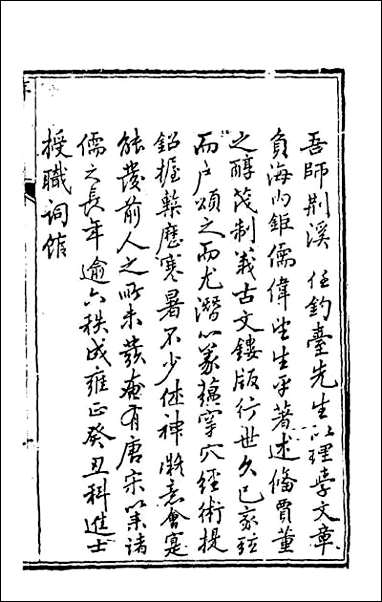 吾師荆溪 任釣臺先生以理學文章
負海内鉅儒偉望生平著述脩賈董
之醇茂制義古文鏤版行世久已家絃
而户頌之而尤潛心篆籒穿穴經術提
鉛握槧歷寒暑不少休神凝意會寔
能發前人之所未發奄有唐宋以來諸
儒之長年逾六秩成雍正癸丑科進士
授職詞舘